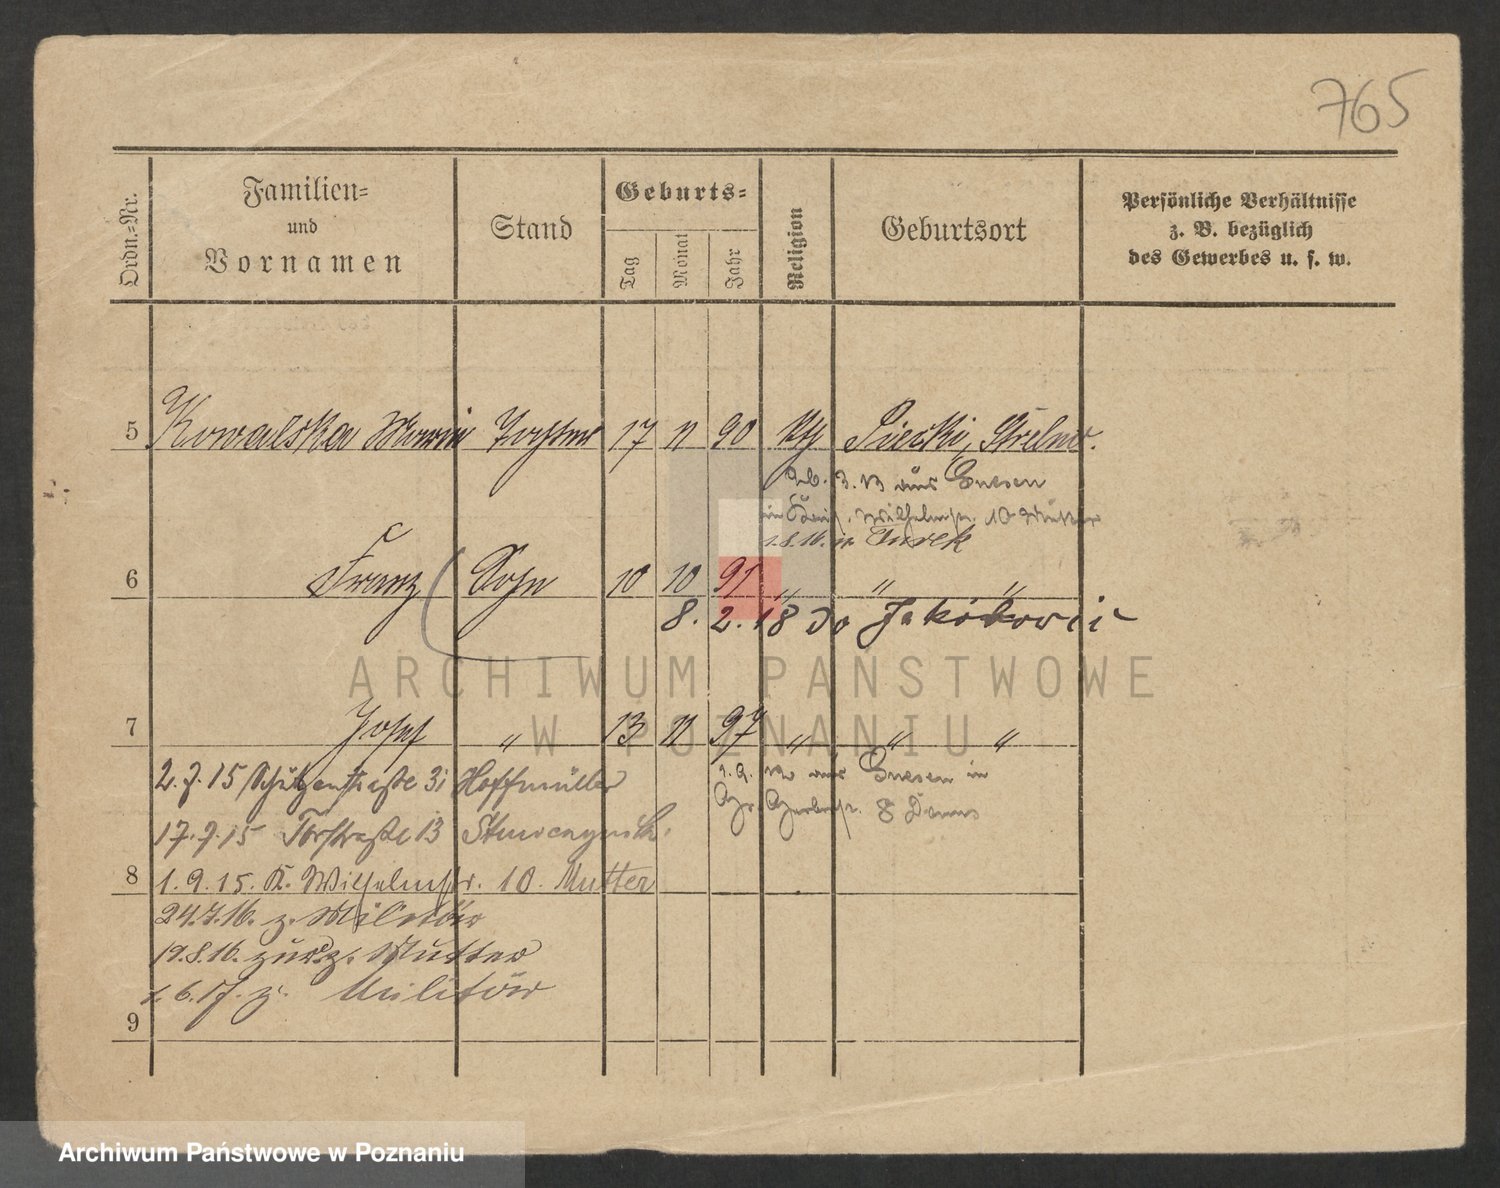 765
Ordn.-Nr.
Familien-
und
Vornamen
Stand
Geburts-
Tag
Monat
Jahr
Religion
Geburtsort
Persönliche Verhältnisse
z. B. bezüglich
des Gewerbes u. s. w.
5 Kowalska Maria Tochter 17 11 90 kth Piecki, Strelno.
3. 13 aus Gnesen
Wilhelmstr. 10 Mutter
1.8.16. n Turek
6 Franz Sohn 10 10 91 " " "
8. 2. 18 do Jakóbowic
7 Josef " 13 11 97 " " "
2.7.15 Schützenstraße 31 Hoffmüller
1.9. aus Gnesen in
17.7.15 Torstraße 13
Gr. Gerberstr. 8
8 1.9.15. K. Wilhelmstr. 10. Mutter
24.7.16. z. Militär
19.8.16. zur. z. Mutter
1.6.17. z. Militär
9
ARCHIWUM PAŃSTWOWE
W POZNANIU
Archiwum Państwowe w Poznaniu